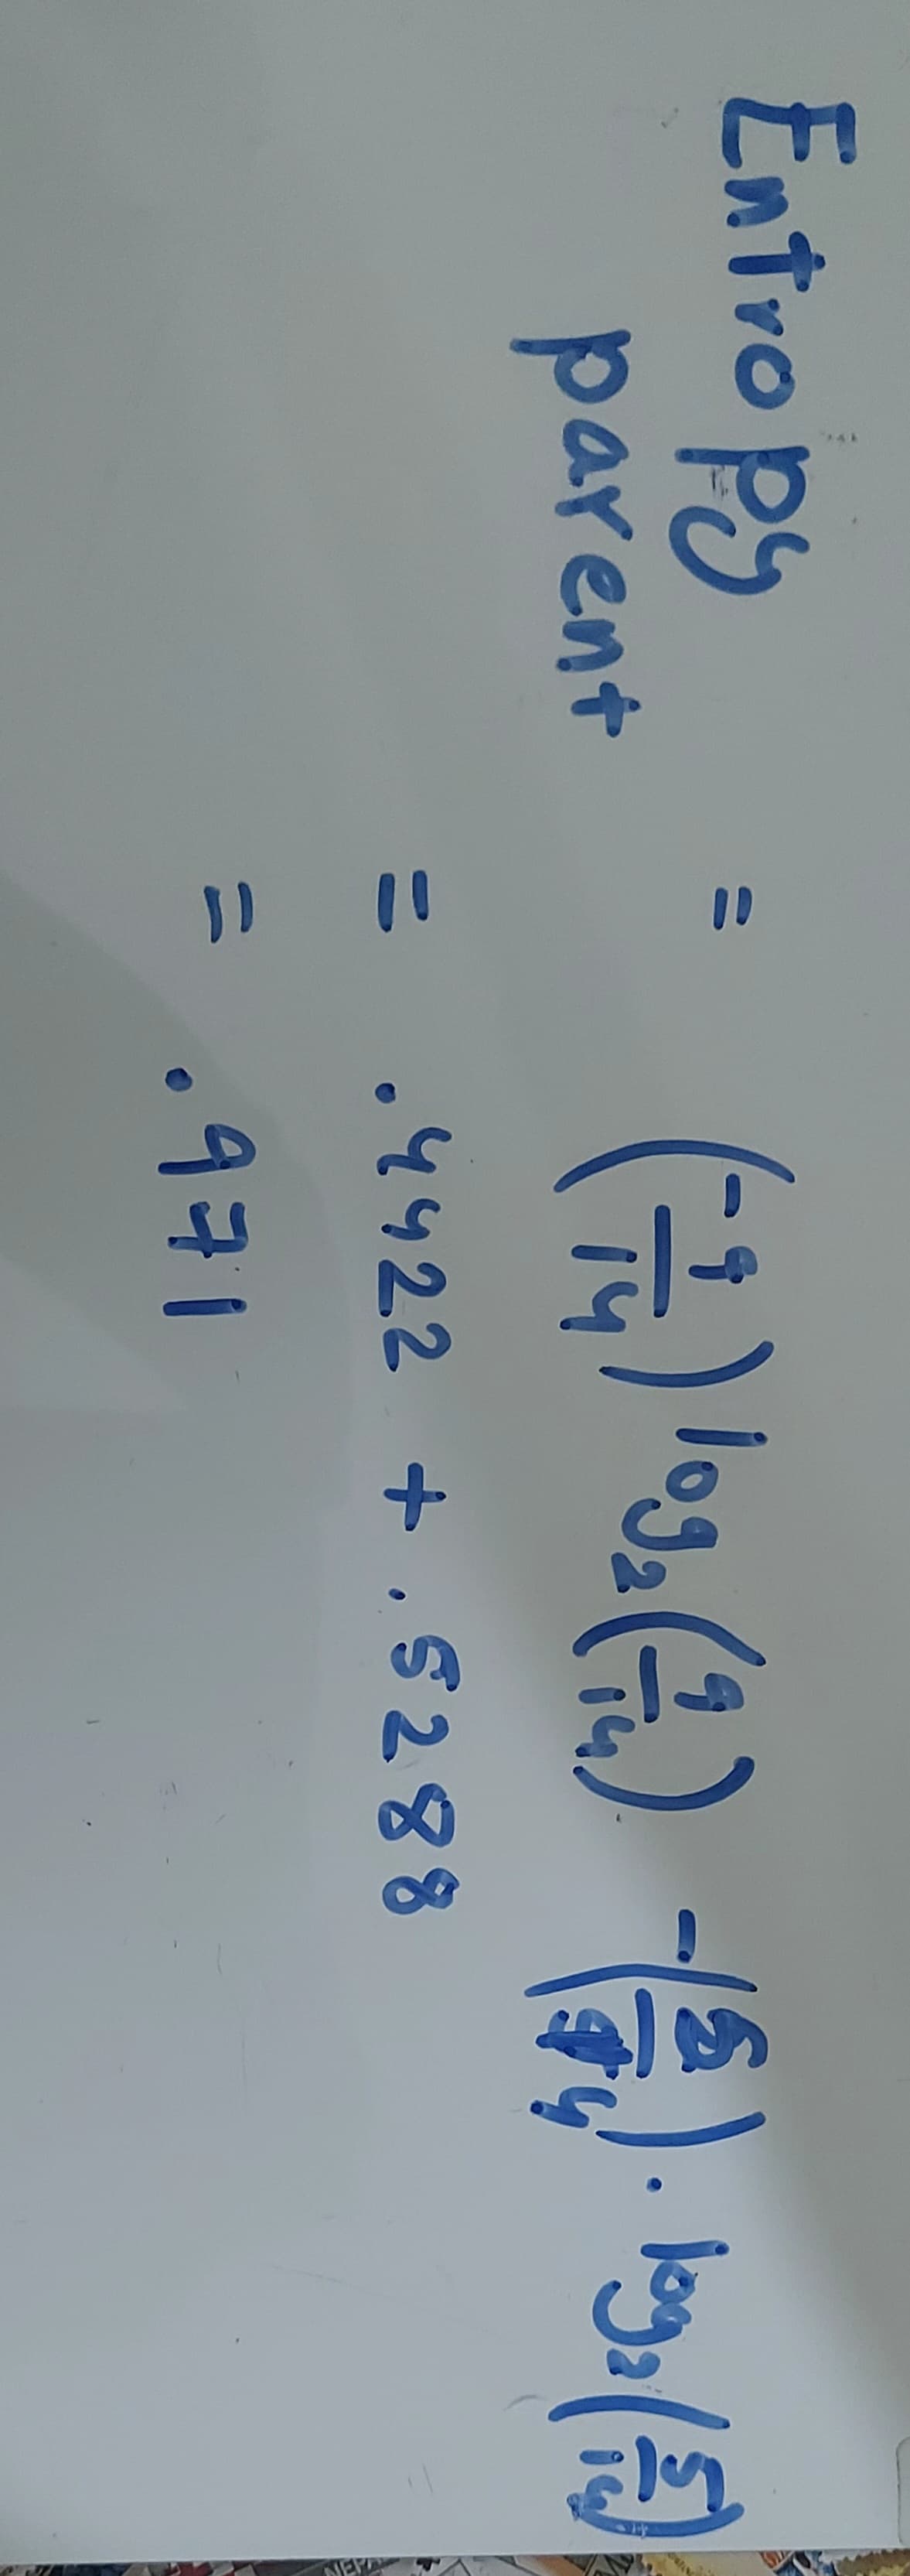 Entropy parent = (-9/14) log₂(9/14) -(5/14) . log₂(5/14)
= .4422 + .5288
= .971